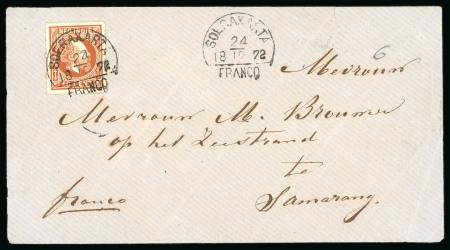 SOERAKARTA
24
18 10 72
FRANCO
SOERAKARTA
24
18 10 72
FRANCO
6
Mevrouw
Mevrouw M. Brouwer
op het Zeestrand
te
Samarang.
franco